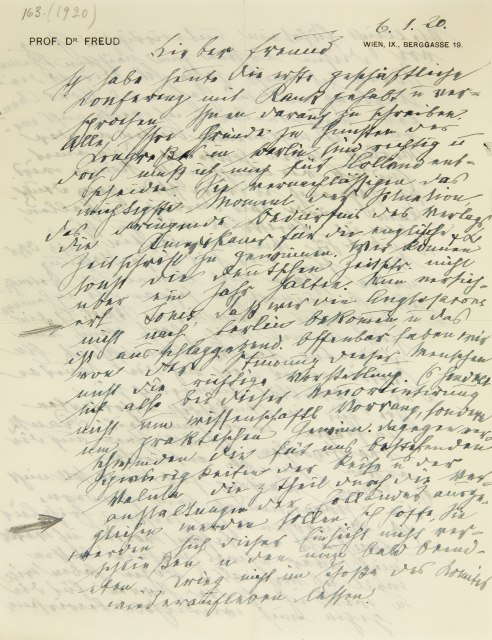 163. (1920)
6. 1. 20.
PROF. DR FREUD
WIEN, IX., BERGGASSE 19.
Lieber Freund
Ich habe heute die erste geschäftliche
Konferenz mit Rank gehabt u ver-
sprochen Ihnen daraus zu schreiben.
Alle Ihre Gründe zu Gunsten des
Kongreßes in Berlin sind richtig u
doch muß ich mich für Holland ent-
scheiden. Sie vernachlässigen das
wichtigste Moment der Situation,
das dringende Bedürfnis des Verlags,
die Amerikaner für die englische
Zeitschrift zu gewinnen. Wir können
sonst die deutschen Zeitschr. nicht
über ein Jahr halten. Nun versich-
ert Jones, daß wir die Anglosaxons
nicht nach Berlin bekommen u das
ist ausschlaggebend. Offenbar haben wir
von der Stimmung dieser Menschen
nicht die richtige Vorstellung. Es handelt
sich also bei dieser Neuorientirung
nicht um wissenschaftl Vorrang, sondern
um praktischen Gewinn. Dagegen ver-
schwinden die für uns bestehenden
Schwierigkeiten der Reise u der
Valuta, die z Theil durch die Ver-
anstaltungen der Holländer ausge-
glichen werden sollen. Ich hoffe, Sie
werden sich dieser Einsicht nicht ver-
schließen u den nun bald beend-
eten Krieg nicht im Schoße des Komites
wiederaufleben lassen.